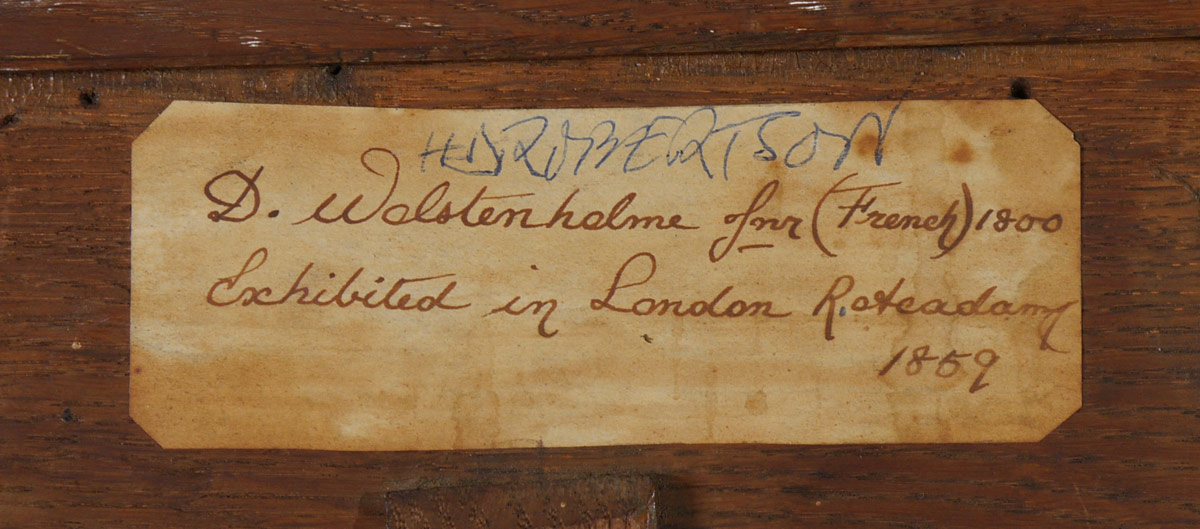 H.D. ROBERTSON
D. Wolstenholme Jnr (French) 1800
Exhibited in London R. Acadamy
1859